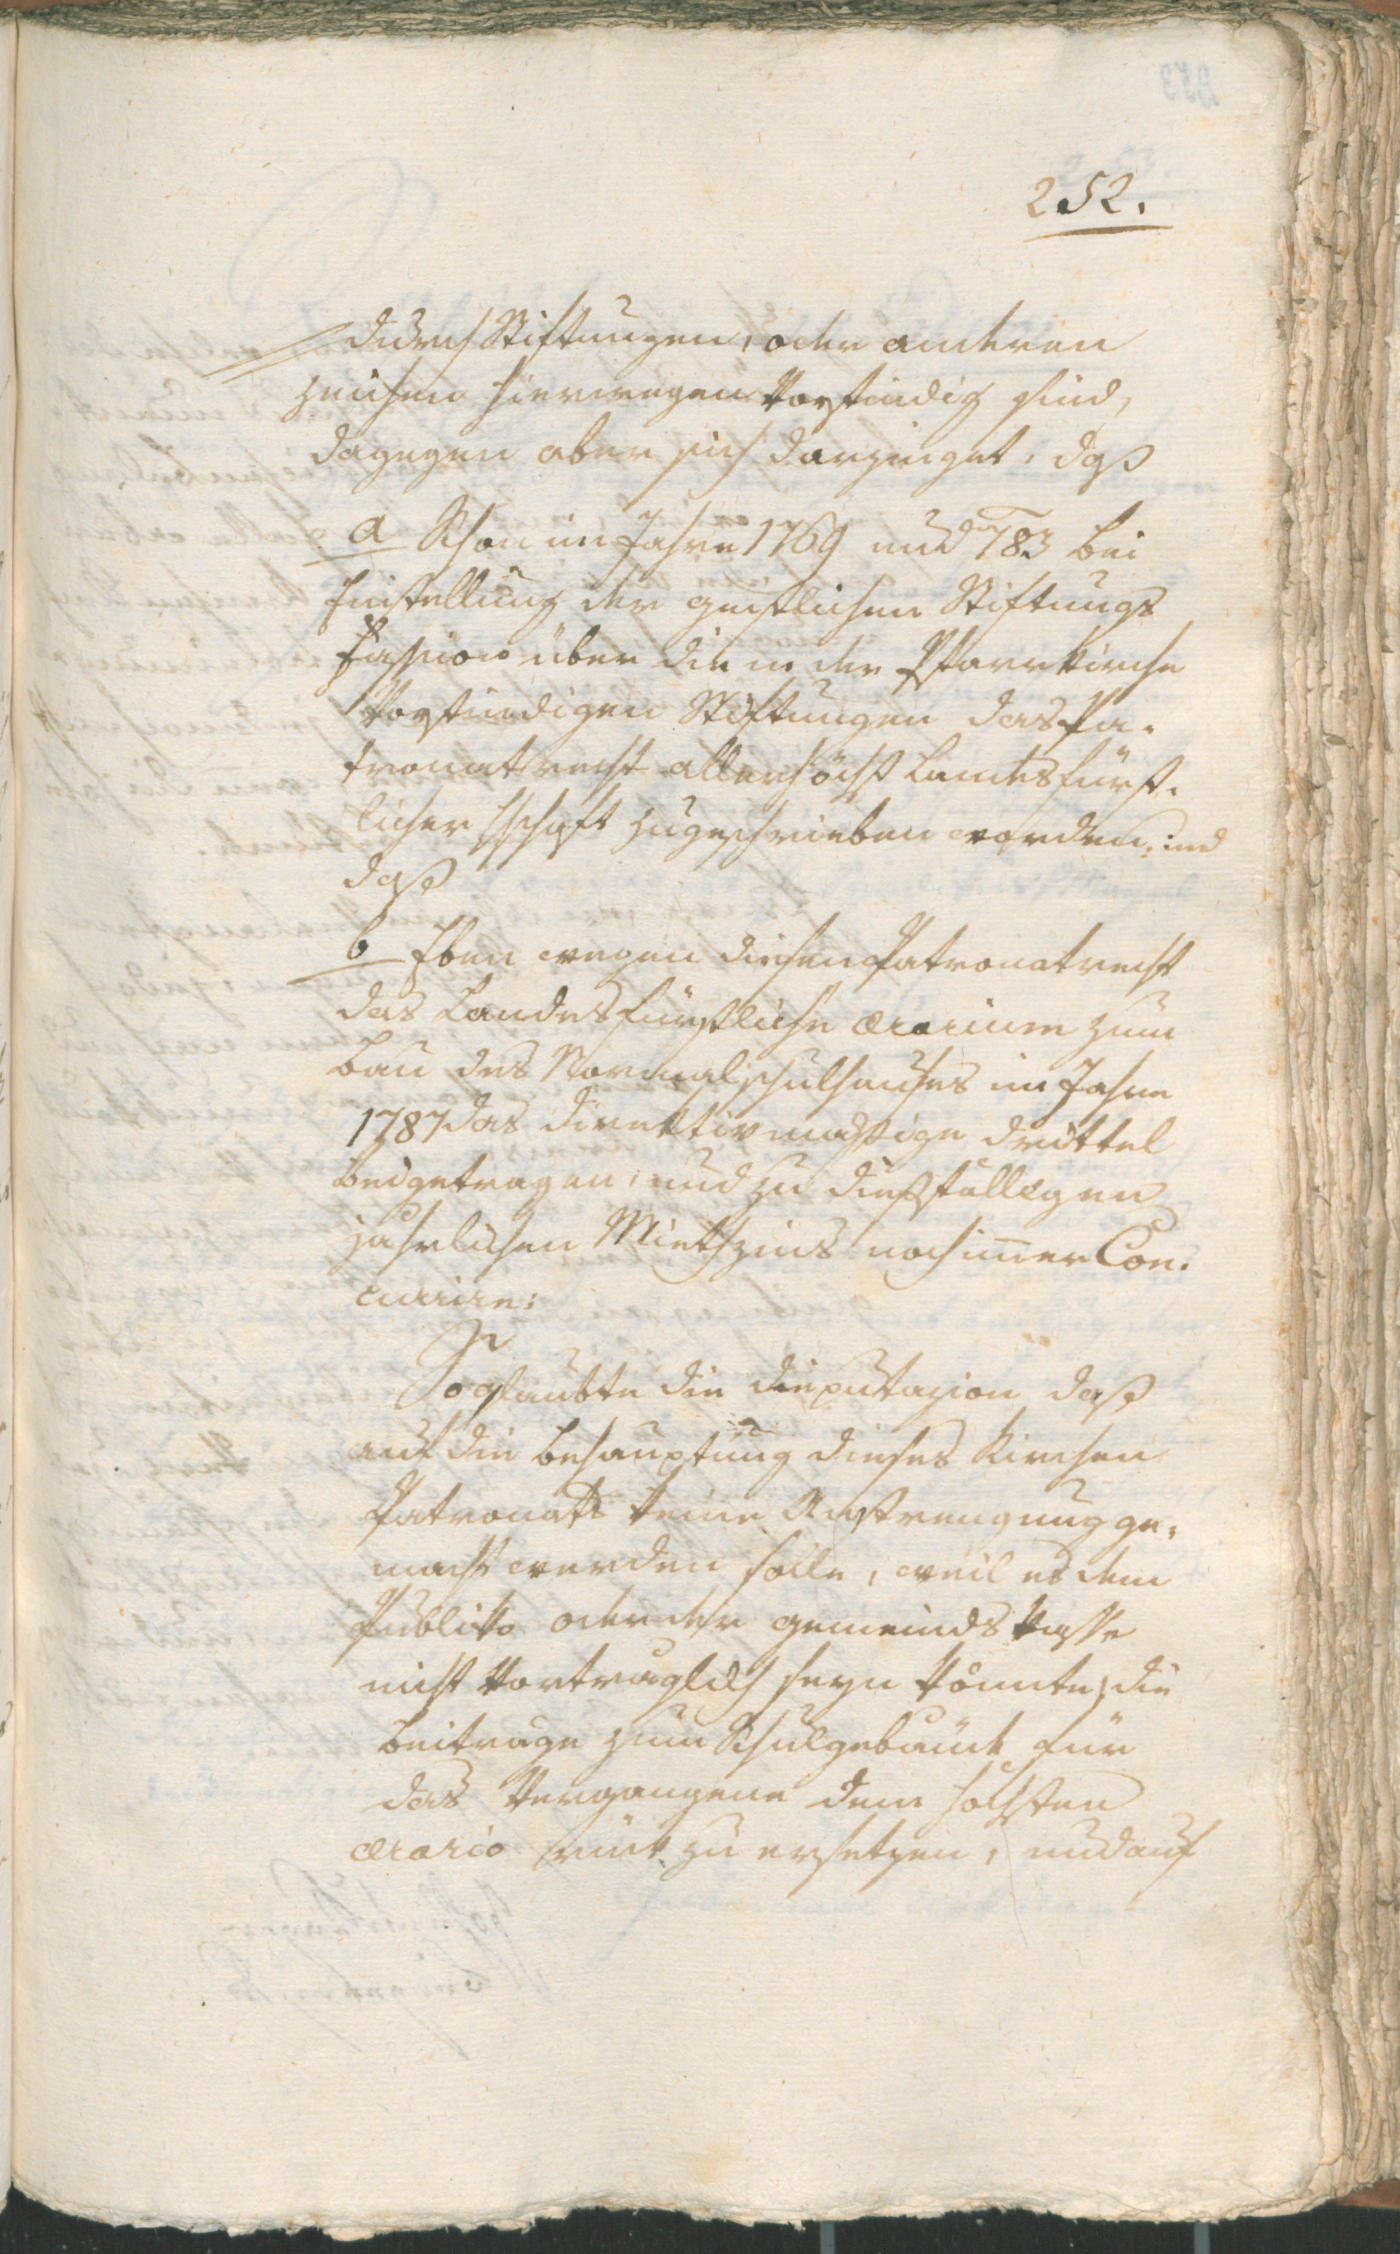 252.
durch Stiftungen, oder anderen
Zeichen hierwegen vorfindig sind,
dagegen aber sich darzeiget, daß
a Schon im Jahre 1769 und 783 bei
Einstellung der geistlichen Stiftungs
Fassion über die in der Pfarrkirche
vorfindigen Stiftungen das Pa-
tronatsrecht allerhöchst Landesfürst-
licher Hschaft zugeschrieben worden; und
daß
b Eben wegen diesen Patronatrecht
das Landesfürstliche ærarium zum
Bau des Normalschulhauses im Jahre
1787 das direktivmäßige drittel
beigetragen, und zu dießfälligen
jährlichen Miethzins noch imer Con-
curire:
So glaubte die dieputazion daß
auf die Behauptung dieses Kirchen
Patronats keine Anstrengung ge-
macht werden solle, weil es dem
Publiko oder der gemeinds Kasse
nicht vorträglich seyn könnte, die
Beiträge zum Schulgebäude für
das Vergangene dem höchsten
ærario rück zu ersetzen, und auf